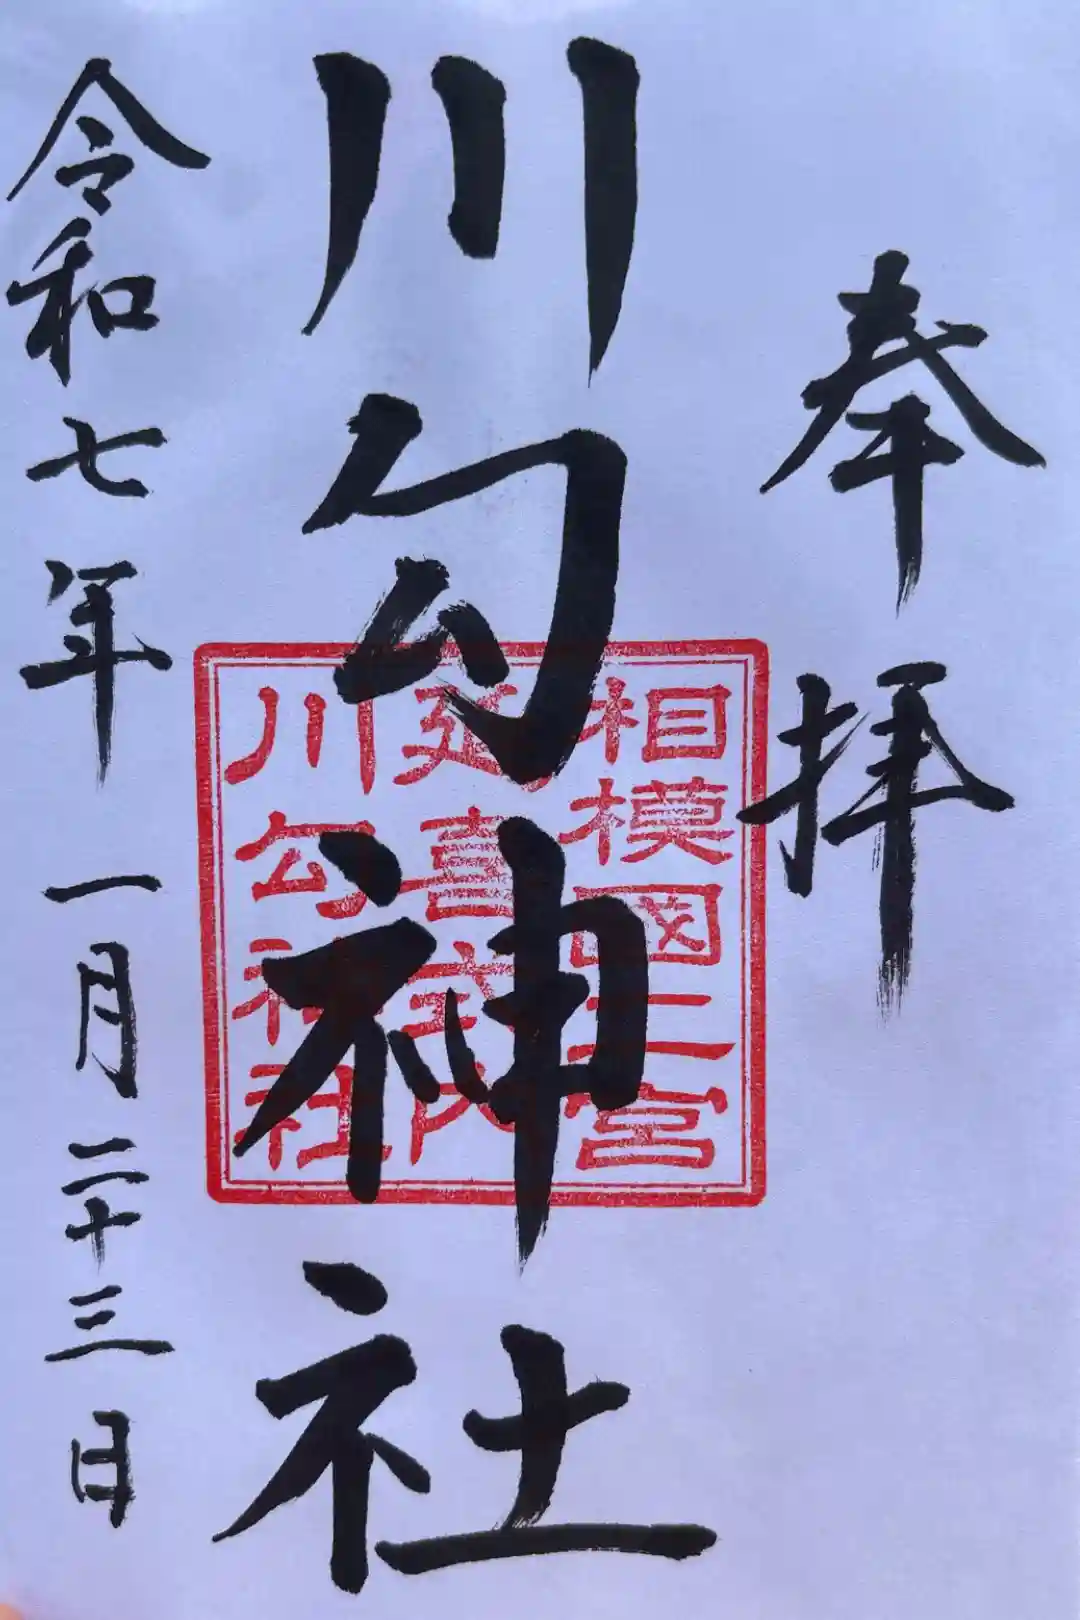 奉拝
川勾神社
相模國二宮
延喜式内
川勾神社
令和七年一月二十三日